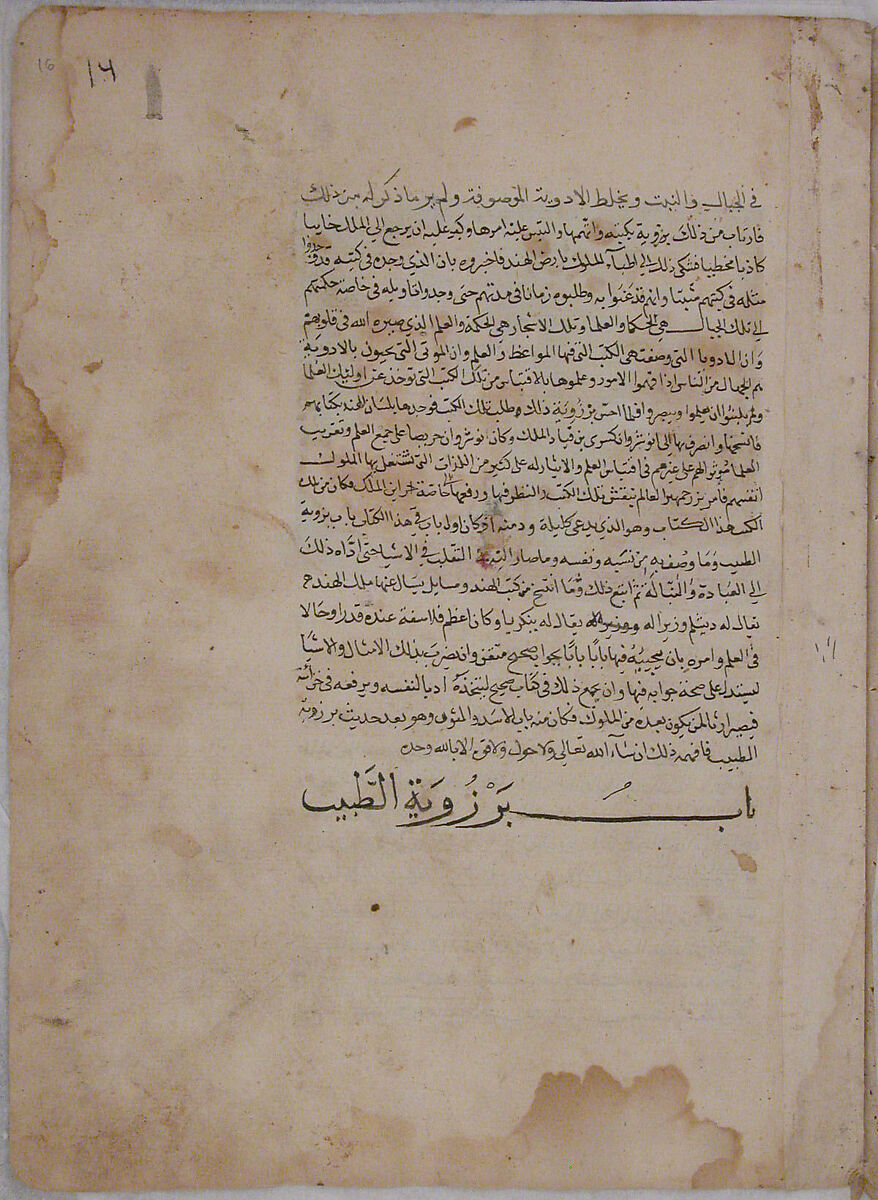 16
١٦
في الجبال والنبت ويخلط الادوية الموصوفة ولم ير ماذكر له من ذلك
فارتاب من ذلك برزوية بكيته واتهمها والتبس عليه امرها وكبر عليه ان يرجع الى الملك خايبا
كاذبا مخطيا فشكى ذلك الى اطبآء الملوك بارض الهند فاخبروه بان الذي وجده في كتبه قد وجدوا
مثله في كتبهم مثبتا وانهم قد عنوا به وطلبوه زمانا في مدتهم حتى وجدوا تاويله في خاصة حكمتهم
ان تلك الجبال هي الحكما والعلما وتلك الاشجار هي الحكمة والعلم الذي صيره الله في قلوبهم
وان الادويا التي وصفت هي الكتب التي فيها المواعظ والعلم وان الموتى التي يحيون بالادوية
هم الجهال من الناس اذا فهموا الامور وعلموها بالاقتباس من تلك الكتب التي توخذ عن اوليك العلما
ولم يلبثوا ان علموا ويبصروا فلما احس برزوية ذلك وطلب تلك الكتب فوجدها بلسان الهند بكتابهم
فانتسخها وانصرف بها الى انوشروان كسرى بن قباد الملك وكان انوشروان حريصا على جميع العلم وتقريب
العلما موثرا لهم على غيرهم في اقتباس العلم والايثار له على كثير من اللذات التي تشتغل بها الملوك
انفسهم فامر بزرجمهر العالم بتفتيش تلك الكتب والنظر فيها ورفعها خاصة خزاين الملك فكان من تلك
الكتب هذا الكتاب وهو الذي يدعى كليلة ودمنه اذ كان اول باب في هذا الكتاب باب برزوية
الطبيب وما وصف به من نسبه ونفسه وما صار اليه من التقلب في الاشيا حتى اداه ذلك
الى العبادة والمتالة ثم اتبع ذلك وما انتسخ من كتب الهند ومسايل يسال عنها ملك الهند
يقال له ديشلم وزيرا له يقال له بنكريا وكان اعظم فلاسفة عنده قدرا وحالا
في العلم وامره بان يجيبه فيها بابا بابا بجواب صحيح متقن وان يضرب بذلك الامثال والاشيا
ليستدل على صحة جوابه فيها وان يجمع ذلك في كتاب صحيح ليتخذه ادبا لنفسه ويرفعه في خزائنه
فيصير ارثا لمن يكون بعده من الملوك فكان منه باب الاسد والثور وهو بعد حديث برزوية
الطبيب فافهم ذلك ان شآء الله تعالى ولا حول ولا قوة الا بالله وحده
باب برزوية الطبيب